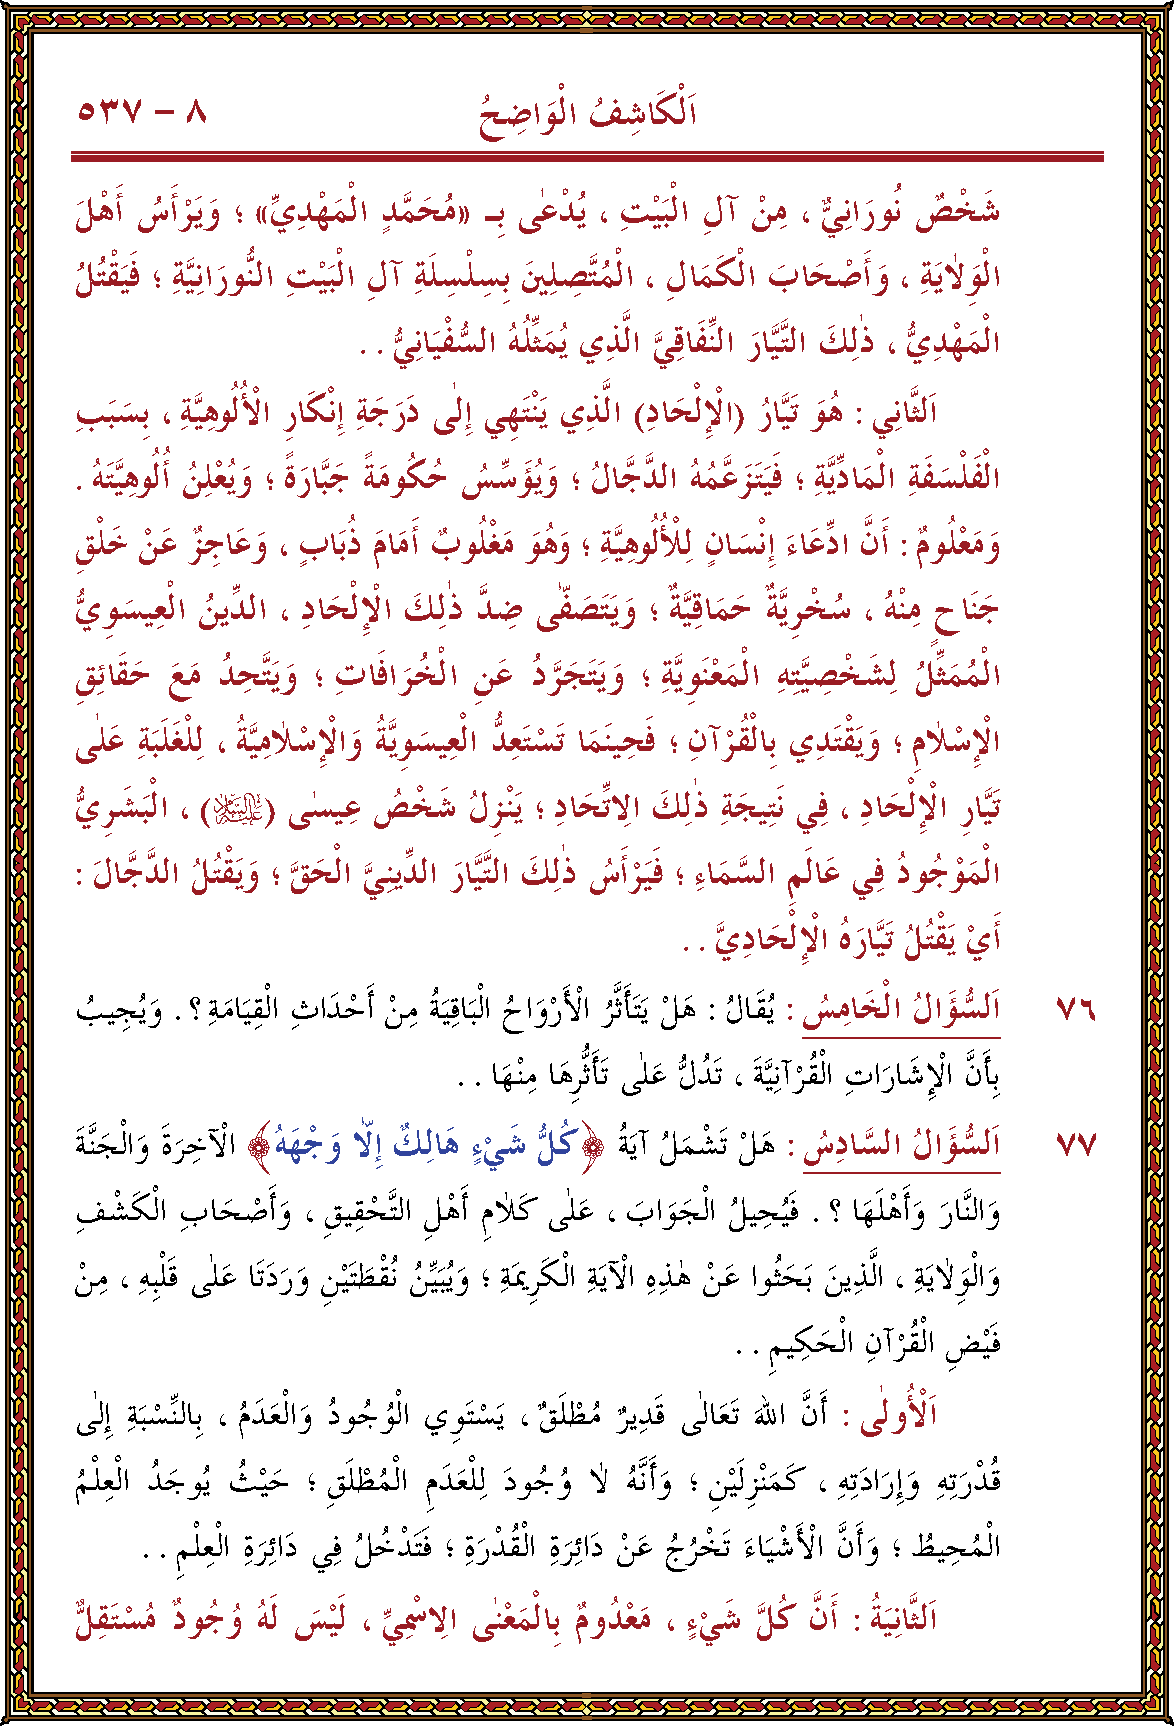 اَلْكَاشِفُ الْوَاضِحُ ٨ – ٥٣٧
شَخْصٌ نُورَانِيٌّ ، مِنْ آلِ الْبَيْتِ ، يُدْعٰى بِـ «مُحَمَّدٍ الْمَهْدِيِّ» ؛ وَيَرْأَسُ أَهْلَ
الْوِلَايَةِ ، وَأَصْحَابَ الْكَمَالِ ، الْمُتَّصِلِينَ بِسِلْسِلَةِ آلِ الْبَيْتِ النُّورَانِيَّةِ ؛ فَيَقْتُلُ
الْمَهْدِيُّ ، ذٰلِكَ التَّيَّارَ النِّفَاقِيَّ الَّذِي يُمَثِّلُهُ السُّفْيَانِيُّ . .
اَلثَّانِي : هُوَ تَيَّارُ (الْإِلْحَادِ) الَّذِي يَنْتَهِي إِلٰى دَرَجَةِ إِنْكَارِ الْأُلُوهِيَّةِ ، بِسَبَبِ
الْفَلْسَفَةِ الْمَادِّيَّةِ ؛ فَيَتَزَعَّمُهُ الدَّجَّالُ ؛ وَيُؤَسِّسُ حُكُومَةً جَبَّارَةً ؛ وَيُعْلِنُ أُلُوهِيَّتَهُ .
وَمَعْلُومٌ : أَنَّ ادِّعَاءَ إِنْسَانٍ لِلْأُلُوهِيَّةِ ؛ وَهُوَ مَغْلُوبٌ أَمَامَ ذُبَابٍ ، وَعَاجِزٌ عَنْ خَلْقِ
جَنَاحٍ مِنْهُ ، سُخْرِيَّةٌ حَمَاقِيَّةٌ ؛ وَيَتَصَفّٰى ضِدَّ ذٰلِكَ الْإِلْحَادِ ، الدِّينُ الْعِيسَوِيُّ
الْمُمَثِّلُ لِشَخْصِيَّتِهِ الْمَعْنَوِيَّةِ ؛ وَيَتَجَرَّدُ عَنِ الْخُرَافَاتِ ؛ وَيَتَّحِدُ مَعَ حَقَائِقِ
الْإِسْلَامِ ؛ وَيَقْتَدِي بِالْقُرْآنِ ؛ فَحِينَمَا تَسْتَعِدُّ الْعِيسَوِيَّةُ وَالْإِسْلَامِيَّةُ ، لِلْغَلَبَةِ عَلٰى
تَيَّارِ الْإِلْحَادِ ، فِي نَتِيجَةِ ذٰلِكَ الِاتِّحَادِ ؛ يَنْزِلُ شَخْصُ عِيسٰى (عليه السلام) ، الْبَشَرِيُّ
الْمَوْجُودُ فِي عَالَمِ السَّمَاءِ ؛ فَيَرْأَسُ ذٰلِكَ التَّيَّارَ الدِّينِيَّ الْحَقَّ ؛ وَيَقْتُلُ الدَّجَّالَ :
أَيْ يَقْتُلُ تَيَّارَهُ الْإِلْحَادِيَّ . .
٧٦ اَلسُّؤَالُ الْخَامِسُ : يُقَالُ : هَلْ يَتَأَثَّرُ الْأَرْوَاحُ الْبَاقِيَةُ مِنْ أَحْدَاثِ الْقِيَامَةِ ؟ . وَيُجِيبُ
بِأَنَّ الْإِشَارَاتِ الْقُرْآنِيَّةَ ، تَدُلُّ عَلٰى تَأَثُّرِهَا مِنْهَا . .
٧٧ اَلسُّؤَالُ السَّادِسُ : هَلْ تَشْمَلُ آيَةُ ﴿كُلُّ شَيْءٍ هَالِكٌ إِلّٰا وَجْهَهُ﴾ الْآخِرَةَ وَالْجَنَّةَ
وَالنَّارَ وَأَهْلَهَا ؟ . فَيُحِيلُ الْجَوَابَ ، عَلٰى كَلَامِ أَهْلِ التَّحْقِيقِ ، وَأَصْحَابِ الْكَشْفِ
وَالْوِلَايَةِ ، الَّذِينَ بَحَثُوا عَنْ هٰذِهِ الْآيَةِ الْكَرِيمَةِ ؛ وَيُبَيِّنُ نُقْطَتَيْنِ وَرَدَتَا عَلٰى قَلْبِهِ ، مِنْ
فَيْضِ الْقُرْآنِ الْحَكِيمِ . .
اَلْأُولٰى : أَنَّ اللهَ تَعَالٰى قَدِيرٌ مُطْلَقٌ ، يَسْتَوِي الْوُجُودُ وَالْعَدَمُ ، بِالنِّسْبَةِ إِلٰى
قُدْرَتِهِ وَإِرَادَتِهِ ، كَمَنْزِلَيْنِ ؛ وَأَنَّهُ لَا وُجُودَ لِلْعَدَمِ الْمُطْلَقِ ؛ حَيْثُ يُوجَدُ الْعِلْمُ
الْمُحِيطُ ؛ وَأَنَّ الْأَشْيَاءَ تَخْرُجُ عَنْ دَائِرَةِ الْقُدْرَةِ ؛ فَتَدْخُلُ فِي دَائِرَةِ الْعِلْمِ . .
اَلثَّانِيَةُ : أَنَّ كُلَّ شَيْءٍ ، مَعْدُومٌ بِالْمَعْنٰى الِاسْمِيِّ ، لَيْسَ لَهُ وُجُودٌ مُسْتَقِلٌّ